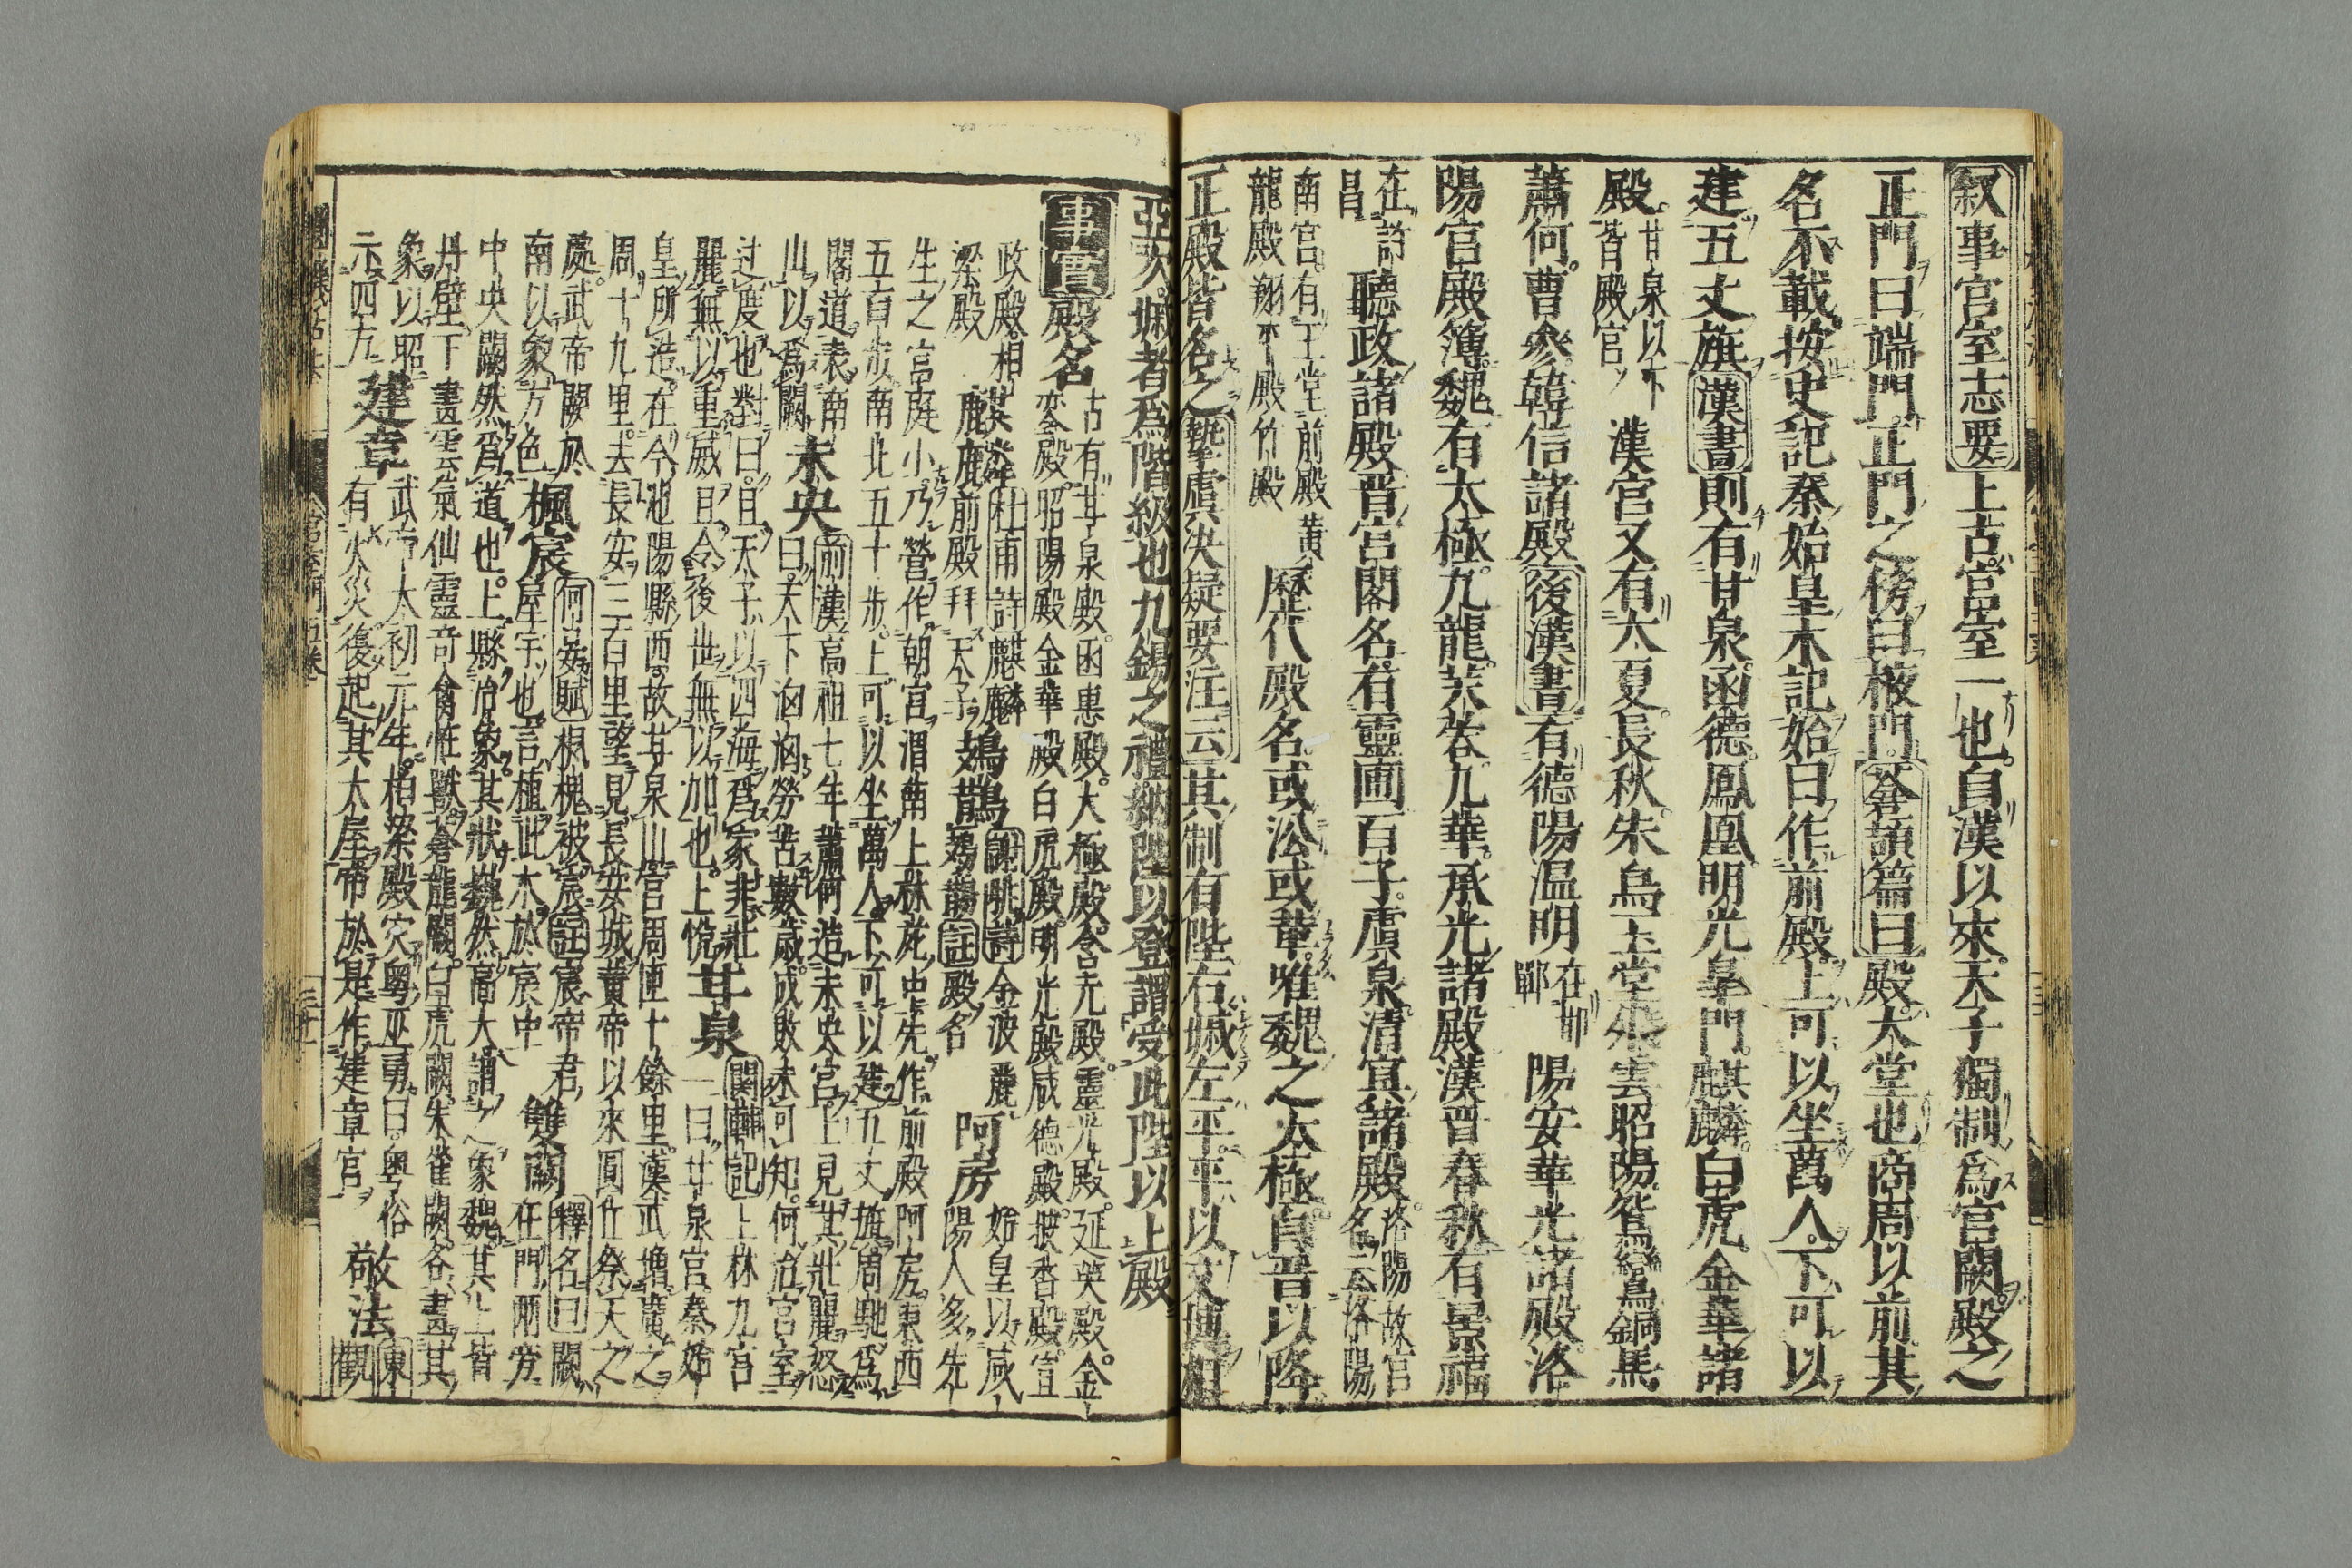 叙事官室志要上古官室一也自漢以來天子獨制爲官闕殿之
正門曰端門正門之傍曰掖門蒼頡篇曰殿大堂也商周以前其
名不載按史記秦始皇本記始曰作前殿上可以坐萬人下可以
建五丈旗漢書則有甘泉函德鳳凰明光皐門麒麟白虎金華諸
殿甘泉以下皆殿官漢官又有大夏長秋朱鳥玉堂飛雲昭陽鴛鸞銅馬
蕭何曹參韓信諸殿後漢書有德陽温明在邯鄲陽安華光諸殿洛
陽官殿簿魏有太極九龍芙蓉九華承光諸殿漢晋春秋有景福
在許昌聽政諸殿晋宮閣名有靈圃百子虞泉清宜諸殿洛陽故宮名云洛陽
南宮有玉堂前殿黄龍殿翔平殿竹殿歴代殿名或㳂或革唯魏之太極自晋以降
正殿皆名之摯虞決疑要注云其制有陛右墄左平平以文塼相
亞次墄者爲階級也九錫之禮納陛以登謂受此陛以上殿
事實殿名古有甘泉殿函惠殿大極殿含元殿靈光殿延英殿金
鑾殿昭陽殿金華殿白虎殿明光殿咸德殿披香殿宣
政殿相梁殿麒麟杜甫詩麒麟金波麗鳷鵲謝脁詩阿房始皇以咸
前殿拜天子鳷鵲註殿名陽人多先
生之宮庭小乃營作朝宮渭南上林苑中先作前殿阿房東西
五百步南北五十步上可以坐萬人下可以建五丈旗周馳爲
閣道表南山以爲闕未央前漢高祖七年蕭何造未央宮上見其壯麗怒
曰天下洶洶勞苦數歳成敗未可知何治宮室
过度也對曰且天子以四海爲家非壯
麗無以重威且令後世無以加也上悅甘泉關輔記上林九宮
一曰甘泉宮秦始
皇所造在今池陽縣西故甘泉山宮周匝十餘里漢武増廣之
周十九里去長安三百里望見長安城黄帝以來圓丘祭天之
處武帝闕於楓宸何晏賦槐楓被宸註宸帝君雙闕釋名曰闕
南以象方色屋宇也言植此木於宸中在門兩旁
中央闕然爲道也上縣治象其狀巍然高大謂之象魏其上皆
丹壁下畫雲氣仙靈奇禽怪獸蒼龍闕白虎闕朱雀闕各畫其
象以昭示四方建章武帝太初元年栢梁殿灾粤巫勇曰粤俗
有火災復起其大屋帝於是作建章官敬法東觀